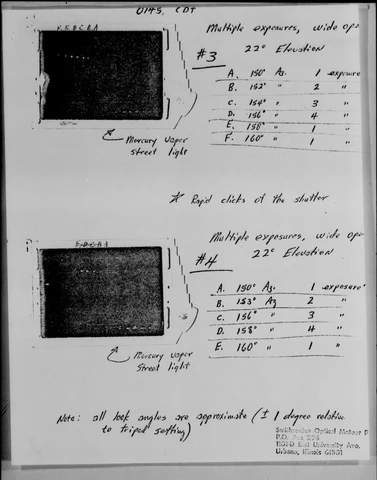 0145 CDT
F.E.D.C.B.A
Multiple exposures, wide ope
#3
22° Elevation
A. 150° Az. 1 exposure
B. 152° " 2 "
C. 154° " 3 "
D. 156° " 4 "
E. 158° " 1 "
F. 160° " 1 "
Mercury vapor
street light
* Rapid clicks of the shutter
E.D.C.B.A
Multiple exposures, wide ope
#4
22° Elevation
A. 150° Az. 1 exposure
B. 153° Az 2 "
C. 156° " 3 "
D. 158° " 4 "
E. 160° " 1 "
Mercury vapor
street light
Note: all look angles are approximate (± 1 degree relative
to tripod setting)
Smithsonian Optical Meteor P
P.O. Box 204
East University Ave.
Urbana, Illinois 61801